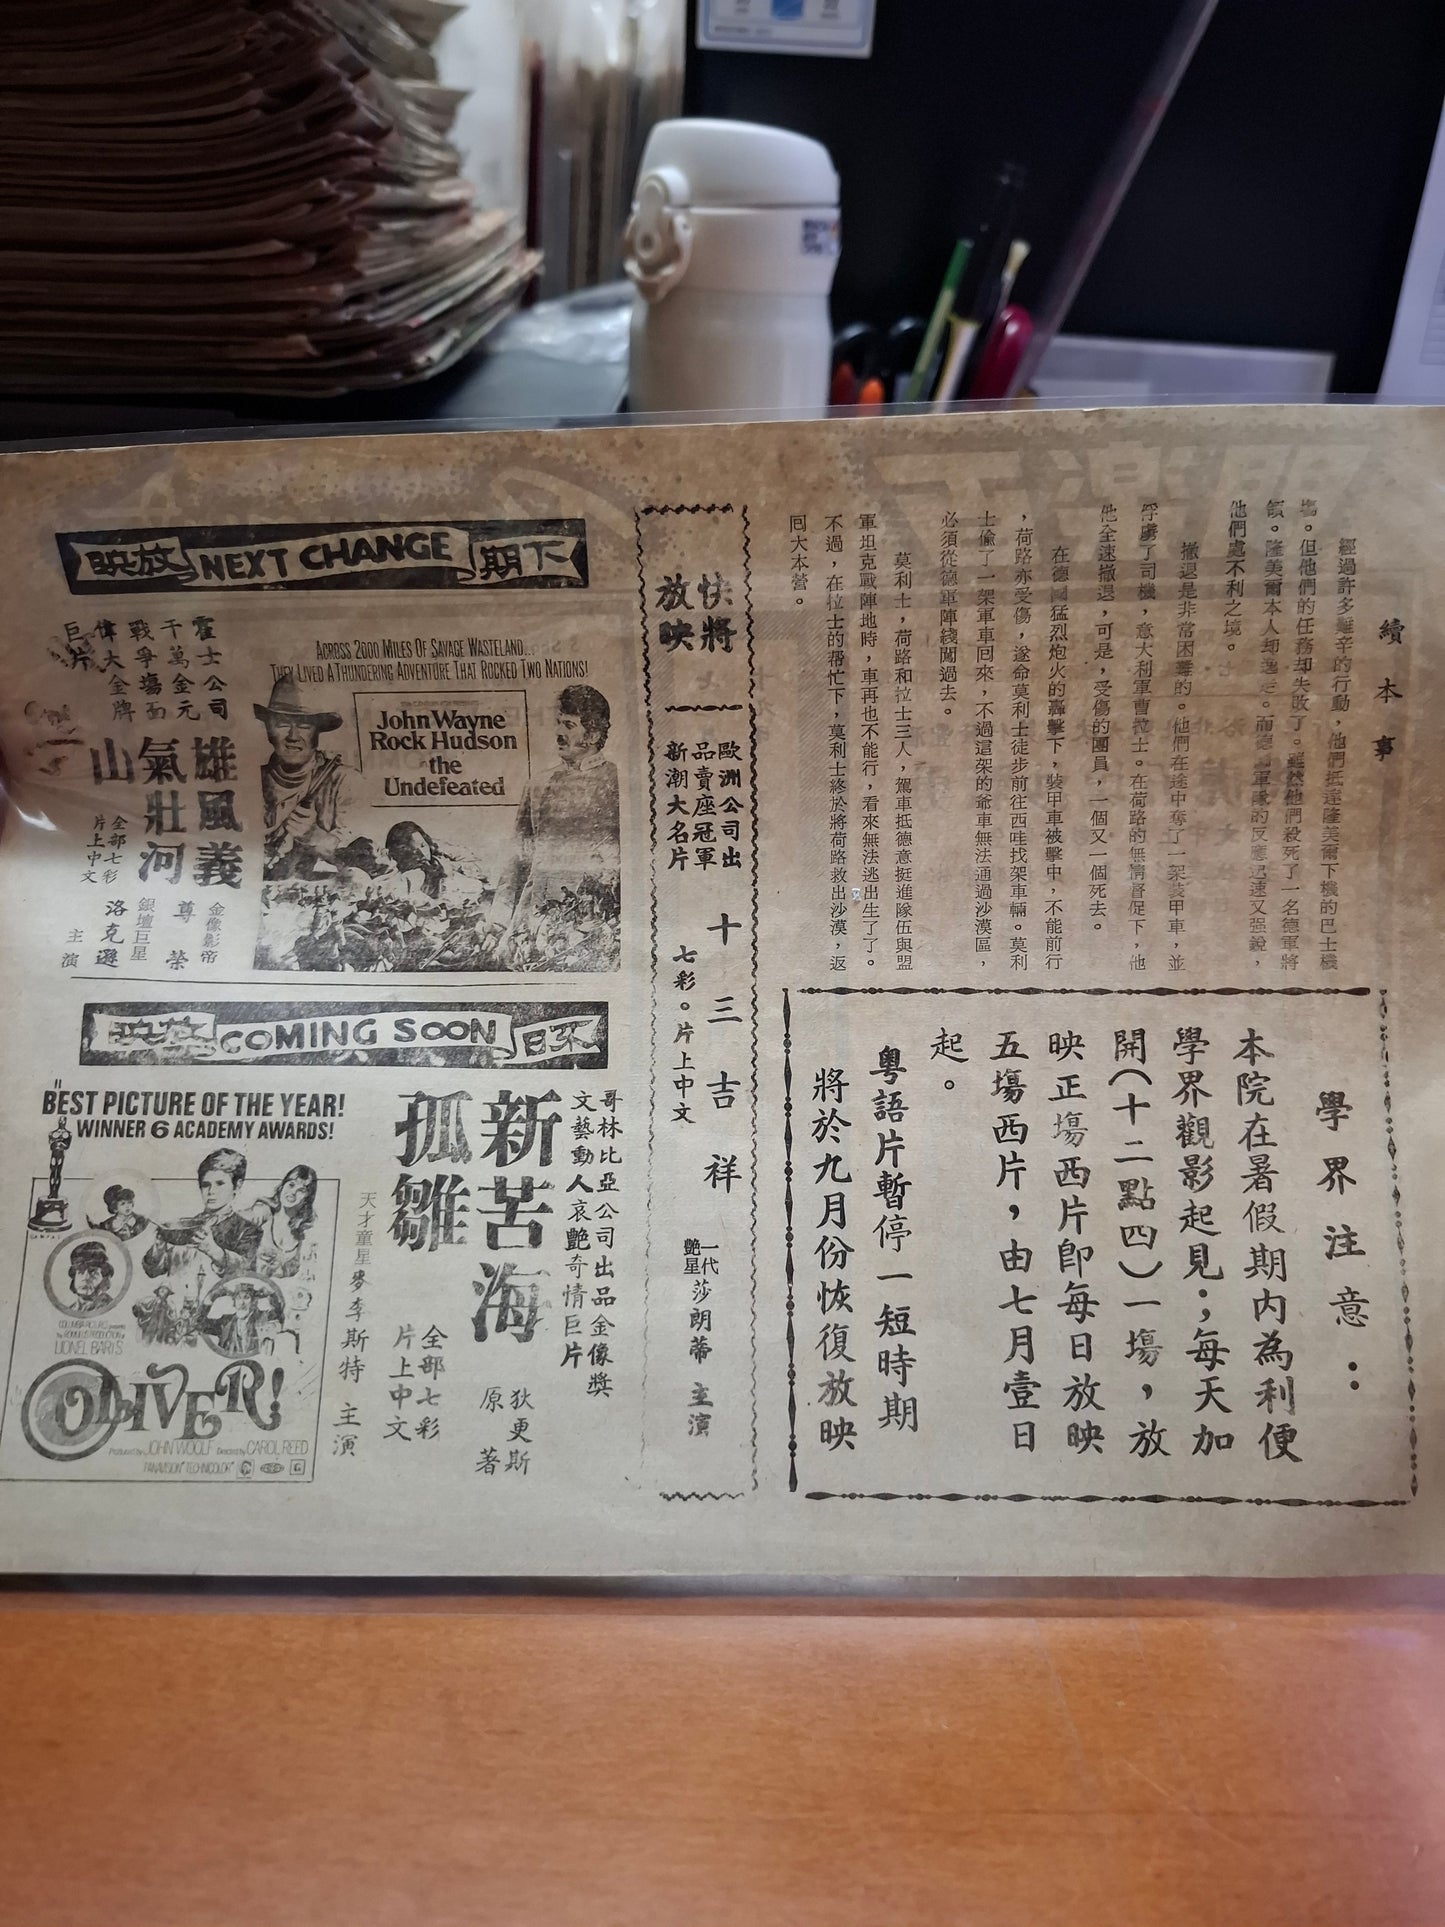 續本事
經過許多艱辛的行動，他們抵達隆美爾下機的巴士機
塲。但他們的任務却失敗了。雖然他們殺死了一名德軍將
領。隆美爾本人却逸走。而德國軍隊的反應迅速又强銳，
他們處不利之境。
撤退是非常困難的。他們在途中奪了一架裝甲車，並
俘虜了司機，意大利軍曹拉士。在荷路的無情督促下，他
他全速撤退，可是，受傷的團員，一個又一個死去。
在德國猛烈炮火的轟擊下，裝甲車被擊中，不能前行
，荷路亦受傷，遂命莫利士徒步前往西哇找架車輛。莫利
士偷了一架軍車回來，不過這架的爺車無法通過沙漠區，
必須從德軍陣綫闖過去。
莫利士，荷路和拉士三人，駕車抵德意挺進隊伍與盟
軍坦克戰陣地時，車再也不能行，看來無法逃出生了了。
不過，在拉士的帮忙下，莫利士終於將荷路救出沙漠，返
囘大本營。
學界注意：
本院在暑假期內為利便
學界觀影起見；每天加
開（十二點四）一塲，放
映正塲西片即每日放映
五塲西片，由七月壹日
起。
粵語片暫停一短時期
將於九月份恢復放映
快將
放映
歐洲公司出
品賣座冠軍
新潮大名片
十三吉祥
七彩。片上中文
一代
艷星
莎朗蒂 主演
下期 NEXT CHANGE 放映
霍士公司
千萬金元
戰爭塲面
偉大金牌
巨片
雄風義
氣壯河
山
全部七彩
片上中文
金像影帝
尊榮
銀壇巨星
洛克遜
主演
ACROSS 2000 MILES OF SAVAGE WASTELAND...
THEY LIVED A THUNDERING ADVENTURE THAT ROCKED TWO NATIONS!
John Wayne
Rock Hudson
the
Undefeated
不日 COMING SOON 放映
哥林比亞公司出品金像獎
文藝動人哀艷奇情巨片
新苦海
孤雛
狄更斯
原著
全部七彩
片上中文
天才童星麥李斯特 主演
"BEST PICTURE OF THE YEAR!
WINNER 6 ACADEMY AWARDS!
COLUMBIA PICTURES presents
LIONEL BART'S
OLIVER!
Produced by JOHN WOOLF Directed by CAROL REED
PANAVISION® TECHNICOLOR®
G